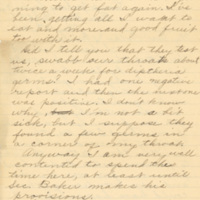 ning to get fat again. I've
been getting all I want to
eat and more and good fruit
to with it.
Did I tell you that they got
us, swabb our throats about
twice a week for diptheria
germs? I had one negative
report and then the next one
was positive. I don't know
why. I'm not a bit
sick, but I suppose they
found a few germs in
a corner of my throat.
Anyway I am very well
contented to spend the
time here, at least until
Sec Baker makes his
provisions